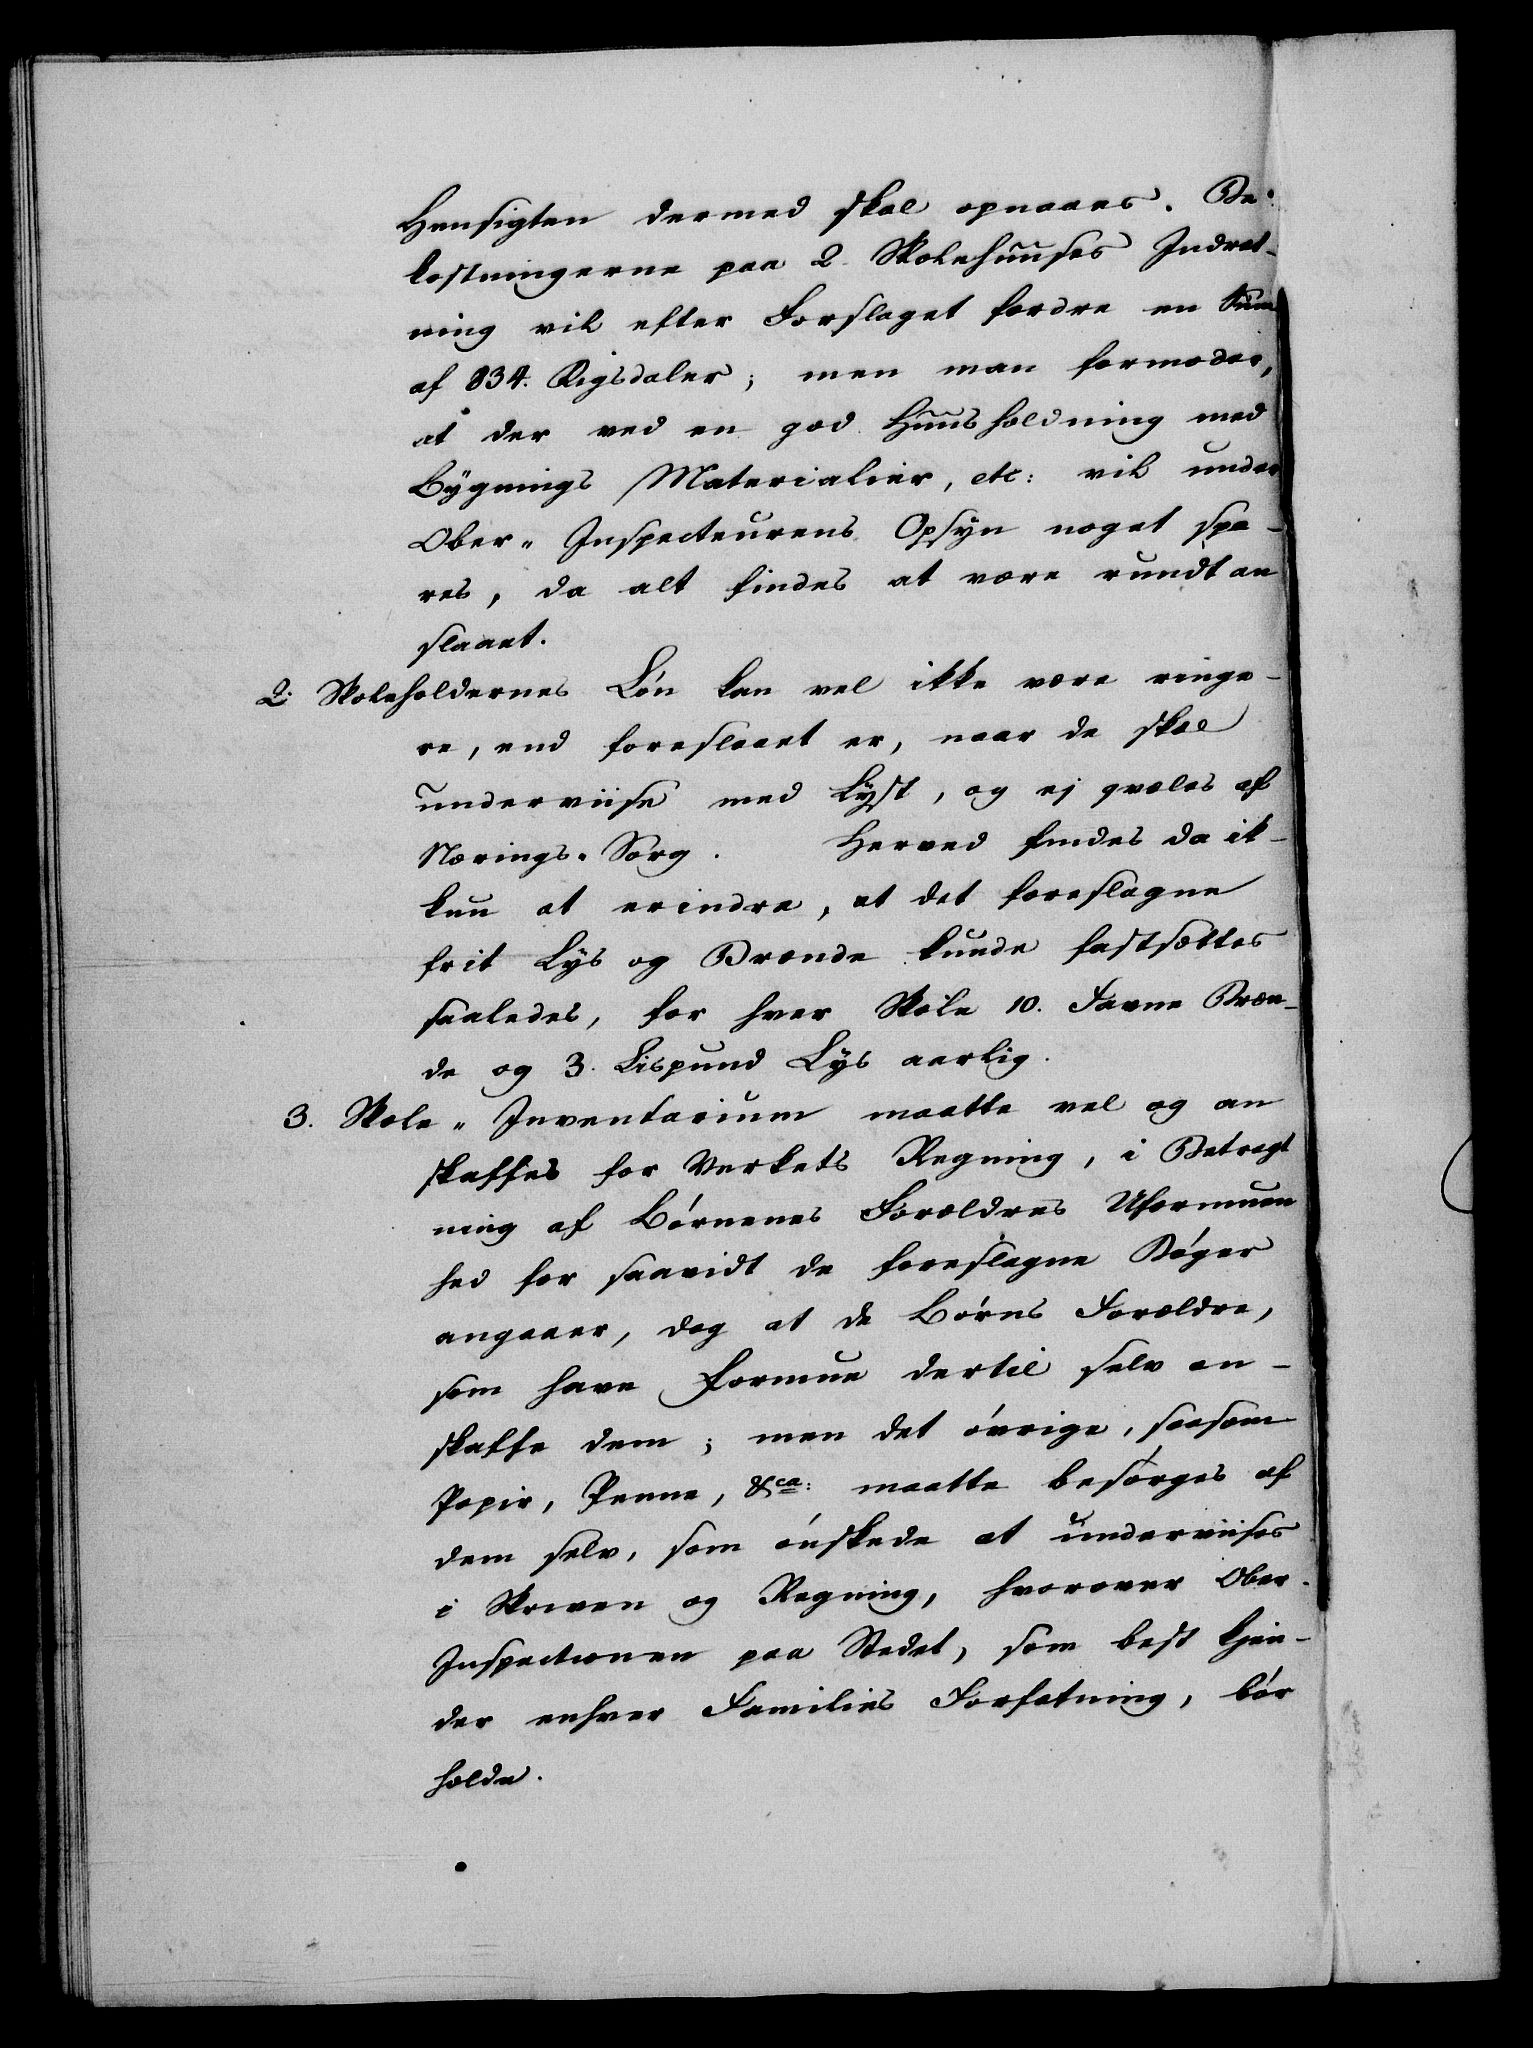 Hensigten dermed skal opnaaes. Be-
kostningerne paa 2. Skolehuuses Indret-
ning vil efter Forslaget fordre en Sum
af 834. Rigsdaler; men man formoder,
at der ved en god Huusholdning med
Bygnings Materialier, etc: vil under
Ober„ Inspecteurens Opsyn noget spa-
res, da alt findes at være rundt an
slaaet.
2. Skoleholdernes Løn kan vel ikke være ringe-
re, end foreslaaet er, naar de skal
underviise med Lyst, og ej qvæles af
Nærings-Sorg. Herved findes da ik-
kun at erindre, at det foreslagne
frit Lys og Brænde kunde fastsættes
saaledes, for hver Skole 10. Favne Bræn-
de og 3. Lispund Lys aarlig.
3. Skole„ Inventarium maatte vel og an
skaffes for Verkets Regning, i Betragt
ning af Børnenes Forældres Uformuen
hed for saavidt de foreslagne Bøger
angaaer, dog at de Børns Forældre,
som have Formue dertil selv an-
skaffe dem; men det øvrige, saasom
Papir, Penne, &ca: maatte besørges af
dem selv, som ønskede at underviises
i Skriven og Regning, hvorover Ober-
Inspectionen paa Stedet, som best kjen-
der enhver Families Forfatning, bør
holde.